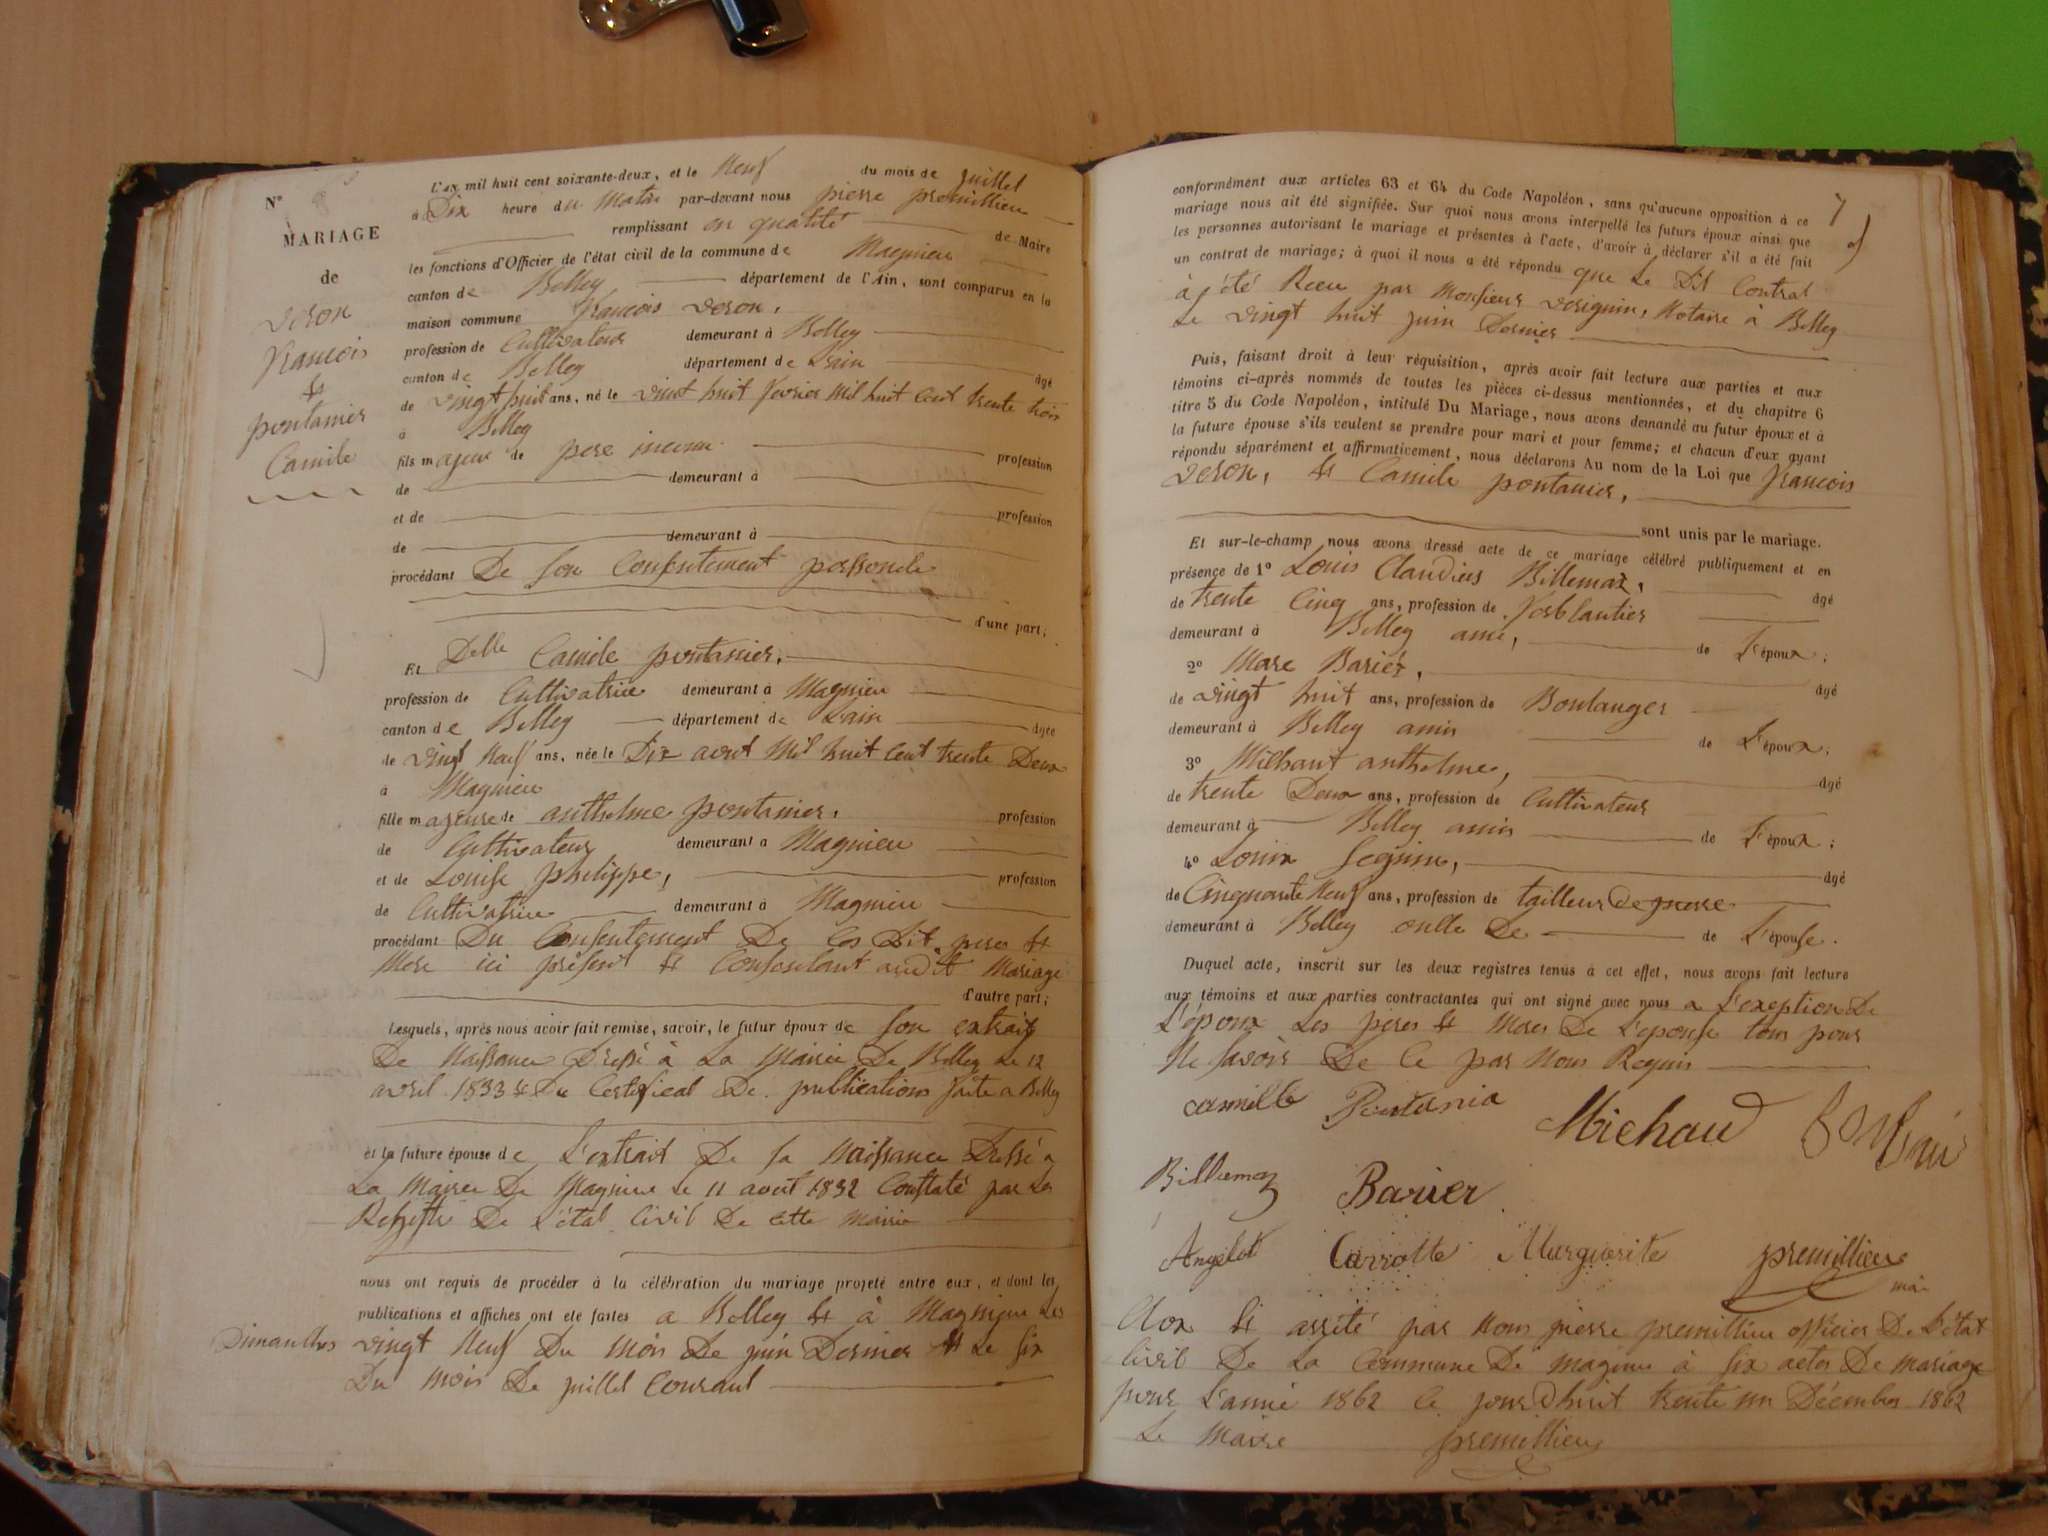 N°
MARIAGE
de
veron
francois
et
pontanier
Camile
L'an mil huit cent soixante-deux, et le Neuf du mois de juillet
à Dix heure du Matin par-devant nous pierre premillieu
remplissant en qualité de Maire
les fonctions d'Officier de l'état civil de la commune de Magnieu
canton de Belley département de l'Ain, sont comparus en la
maison commune francois veron,
profession de Cultivateur demeurant à Belley
canton de Belley département de Lain âgé
de vingt huit ans, né le vint huit fevrier mil huit cent trente trois
à Belley
fils majeur de pere inconu profession
de demeurant à
et de profession
de demeurant à
procédant De son Consentement personele
d'une part;
Et Delle Camile pontanier,
profession de Cultivatrice demeurant à Magnieu
canton de Belley département de Lain âgée
de vingt Neuf ans, née le Dix aout Mil huit Cent trente Deux
à Magnieu
fille majeure de anthelme pontanier, profession
de Cultivateur demeurant à Magnieu
et de Louise philippe, profession
de Cultivatrice demeurant à Magnieu
procédant Du Consentement De Ces Dit peres et
Mere ici présent et Consentant audit Mariage
d'autre part;
Lesquels, après nous avoir fait remise, savoir, le futur époux de son extrait
De Naissance Dressé à La Mairie De Belley Le 12
avril 1833 et Du Certificat De publications faite a Belley
et la future épouse de L'extrait De sa Naissance Dressé a
La Mairie De Magnieu le 11 aout 1832 Constaté par Les
Registre De L'état Civil De cette mairie
nous ont requis de procéder à la célébration du mariage projeté entre eux, et dont les
publications et affiches ont été faites a Belley et à Magnieu Les
Dimanches vingt Neuf Du Mois De juin Dernier et Le six
Du Mois De juillet Courant
7
conformément aux articles 63 et 64 du Code Napoléon, sans qu'aucune opposition à ce
mariage nous ait été signifiée. Sur quoi nous avons interpellé les futurs époux ainsi que
les personnes autorisant le mariage et présentes à l'acte, d'avoir à déclarer s'il a été fait
un contrat de mariage; à quoi il nous a été répondu que Le Dit Contrat
à été Recu par Monsieur Notaire à Belley
Le vingt huit juin Dernier
Puis, faisant droit à leur réquisition, après avoir fait lecture aux parties et aux
témoins ci-après nommés de toutes les pièces ci-dessus mentionnées, et du chapitre 6
titre 5 du Code Napoléon, intitulé Du Mariage, nous avons demandé au futur époux et à
la future épouse s'ils veulent se prendre pour mari et pour femme; et chacun d'eux ayant
répondu séparément et affirmativement, nous déclarons Au nom de la Loi que francois
veron, et Camile pontanier,
sont unis par le mariage.
Et sur-le-champ nous avons dressé acte de ce mariage célébré publiquement et en
présence de 1° Louis Claudius Billemaz, âgé
de trente Cinq ans, profession de ferblantier
demeurant à Belley ami, de L'époux;
2° Marc Barier, âgé
de vingt huit ans, profession de Boulanger
demeurant à Belley amis de L'époux;
3° Milhaut anthelme, âgé
de trente Deux ans, profession de Cultivateur
demeurant à Belley amis de L'époux;
4° Louis Seguin, âgé
de Cinquante Neuf ans, profession de tailleur De pierre
demeurant à Belley oncle De de L'épouse.
Duquel acte, inscrit sur les deux registres tenus à cet effet, nous avons fait lecture
aux témoins et aux parties contractantes qui ont signé avec nous a L'exeption De
L'époux Les peres et Meres De L'epouse tous pour
Ne savoir De Ce par Nous Requis
camille Pontania Michaud
Billiemaz Barier
Angelot Carrotte Marguerite premillieu
mai
Clos et arrété par Nous pierre premillieu officier De L'état
Civil De La Commune De Magnieu à six actes De Mariage
pour L'année 1862 Ce jourDhuit trente un Décembre 1862
Le Maire premillieu